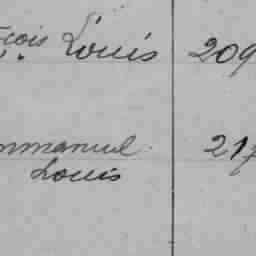 çois Louis 209
mmanuel 217
Louis